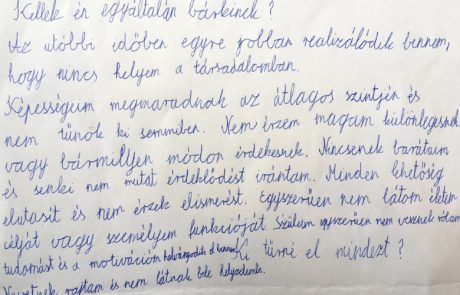 Kellek én egyáltalán bárkinek?
Az utóbbi időben egyre jobban realizálódik bennem,
hogy nincs helyem a társadalomban.
Képességeim megmaradnak az átlagos szintjén és
nem tűnök ki semmiben. Nem érzem magam különlegesnek
vagy bármillyen módon érdekesnek. Nincsenek barátaim
és senki nem mutat érdeklődést irántam. Minden lehetőség
elutasít és nem érzek elismerést. Egyszerűen nem látom életem
célját vagy személyem funkcióját. Szüleim egyszerűen nem vesznek rólam
tudomást és a motivációm halványodik el bennem. Ki tűrné el mindezt?
rajtam és nem látnak bele helyzetembe.